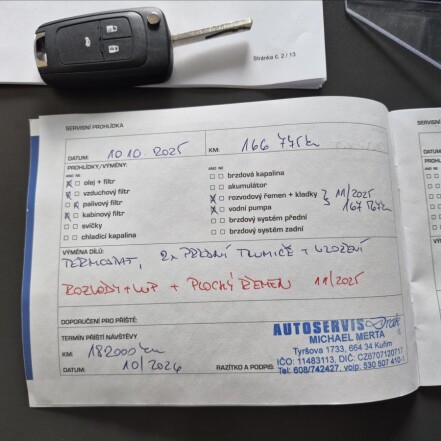 Stránka č. 2 / 13
SERVISNÍ PROHLÍDKA
DATUM: 10 10. 2025
KM: 166 745 km
PROHLÍDKY/VÝMĚNY:
ANO NE
olej + filtr
vzduchový filtr
palivový filtr
kabinový filtr
svíčky
chladící kapalina
ANO NE
brzdová kapalina
akumulátor
rozvodový řemen + kladky
vodní pumpa
brzdový systém přední
brzdový systém zadní
11/2025
VÝMĚNA DÍLŮ:
TERMOSTAT, 2x PŘEDNÍ TLUMIČE + ULOŽENÍ
ROZVODY + VP + PLOCHÝ ŘEMEN 11/2025
DOPORUČENÍ PRO PŘÍŠTĚ:
TERMÍN PŘÍŠTÍ NÁVŠTĚVY
KM: 182000 km
DATUM: 10/2026
RAZÍTKO A PODPIS:
AUTOSERVIS
MICHAEL MERTA
Tyršova 1733, 664 34 Kuřim
IČO: 11483113, DIČ: CZ8707120717
Tel: 608/742427, voip. 530 507 410